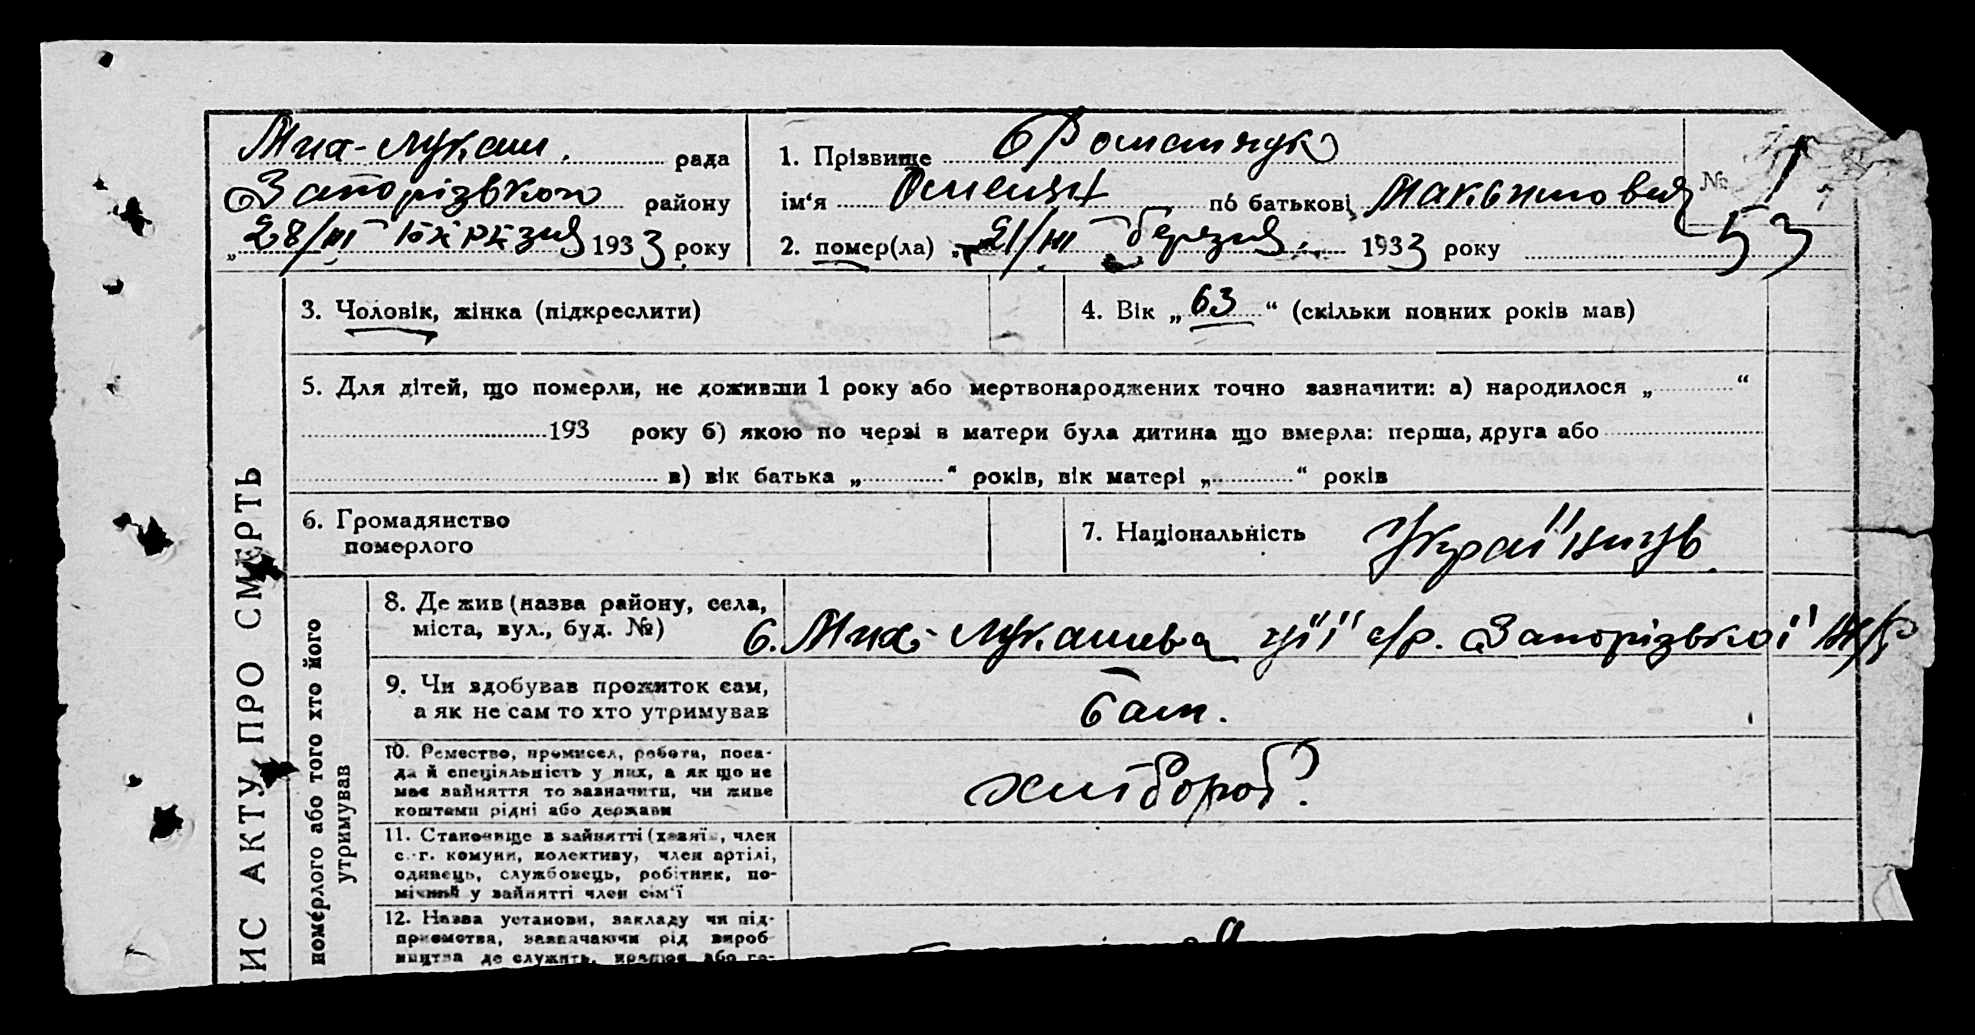 Миха-Лукаш. рада
Запорізького району
„28/III березня 1933 року
1. Прізвище
ім‘я по батькові
2. помер(ла) „21/III березня. 1933 року
№ 1
53
ПИС АКТУ ПРО СМЕРТЬ
3. Чоловік, жінка (підкреслити)
4. Вік „63“ (скільки повних років мав)
5. Для дітей, що померли, не доживши 1 року або мертвонароджених точно зазначити: а) народилося „ “
193 року б) якою по черзі в матери була дитина що вмерла: перша, друга або
в) вік батька „ “ років, вік матері „ “ років
6. Громадянство
померлого
7. Національність Українець
померлого або того хто його
утримував
8. Де жив (назва району, села,
міста, вул., буд. №)
с. Миха-Лукашева ції с/р. Запорізької
9. Чи здобував прожиток сам,
а як не сам то хто утримував
сам.
10. Ремество, промисел, робота, поса-
да й спеціяльність у них, а як що не
має зайняття то зазначити, чи живе
коштами рідні або держави
хлібороб.
11. Становище в зайнятті (хазяїн, член
с.-г. комуни, колективу, член артілі,
одинець, службовець, робітник, по-
мічний у зайнятті член сім‘ї
12. Назва установи, закладу чи під-
приємства, зазначаючи рід вироб-
ництва де служить,